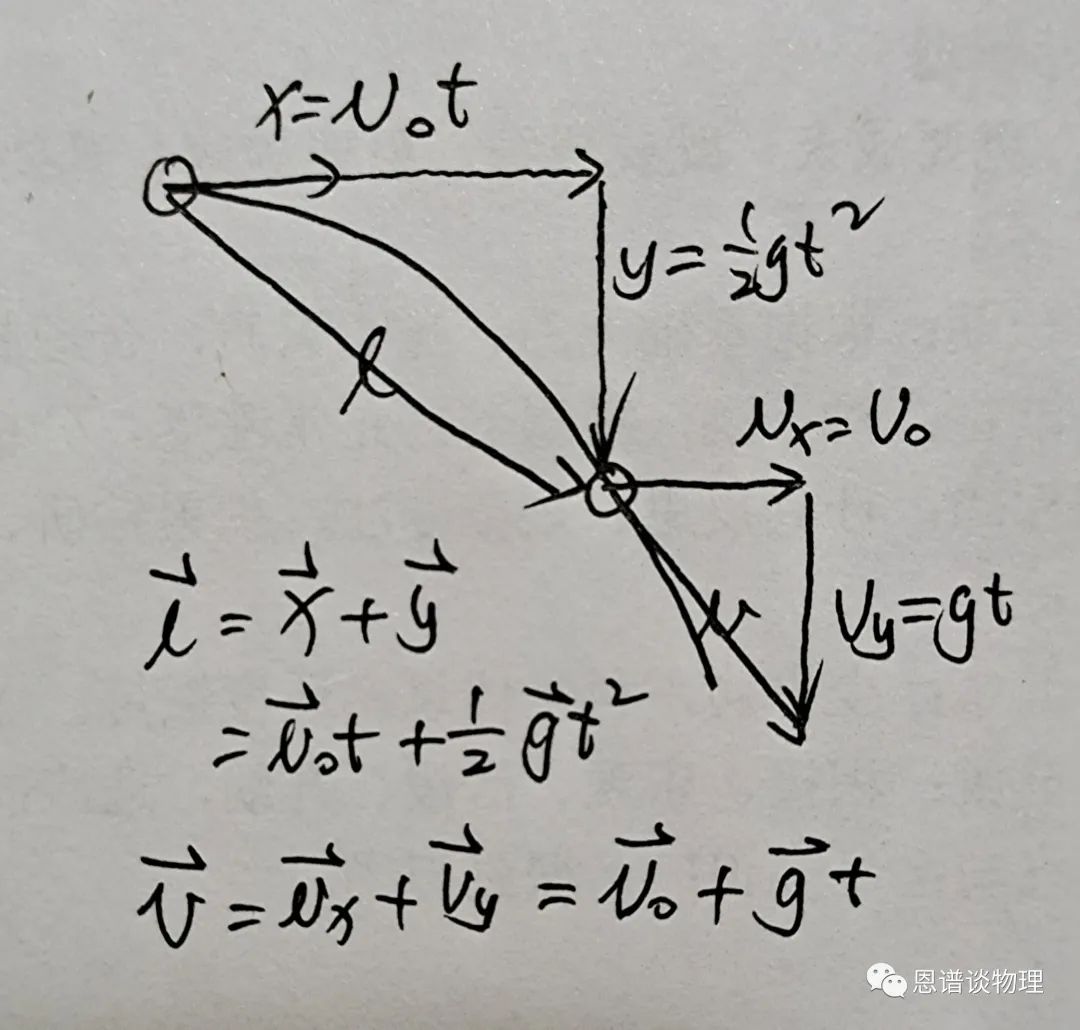 x=v₀t
y=½gt²
l
vₓ=v₀
v_y=gt
v
l⃗=x⃗+y⃗
=v⃗₀t+½g⃗t²
v⃗=v⃗ₓ+v⃗_y=v⃗₀+g⃗t
恩谱谈物理